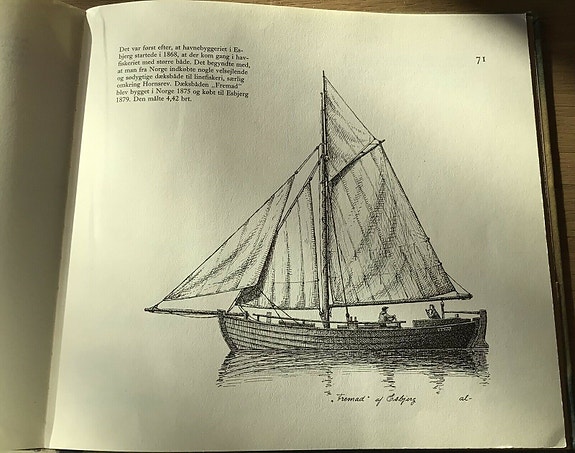 Det var først efter, at havnebyggeriet i Es-
bjerg startede i 1868, at der kom gang i hav-
fiskeriet med større både. Det begyndte med,
at man fra Norge indkøbte nogle velsejlende
og sødygtige dæksbåde til linefiskeri, særlig
omkring Hornsrev. Dæksbåden „Fremad"
blev bygget i Norge 1875 og købt til Esbjerg
1879. Den målte 4,42 brt.
71
„Fremad" af Esbjerg
al-